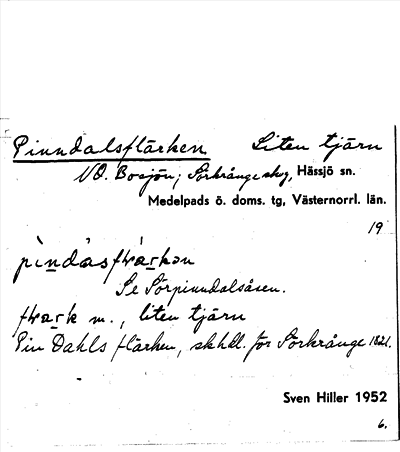 Pinndalsflärken Liten tjärn
NO. Bosjön; Sörkrånge skog, Hässjö sn.
Medelpads ö. doms. tg, Västernorrl. län.
19
Se Sörpinndalsåsen.
m., liten tjärn
Pin Dahls flärken, skhdl. för Sörkrånge 1821.
Sven Hiller 1952
6.